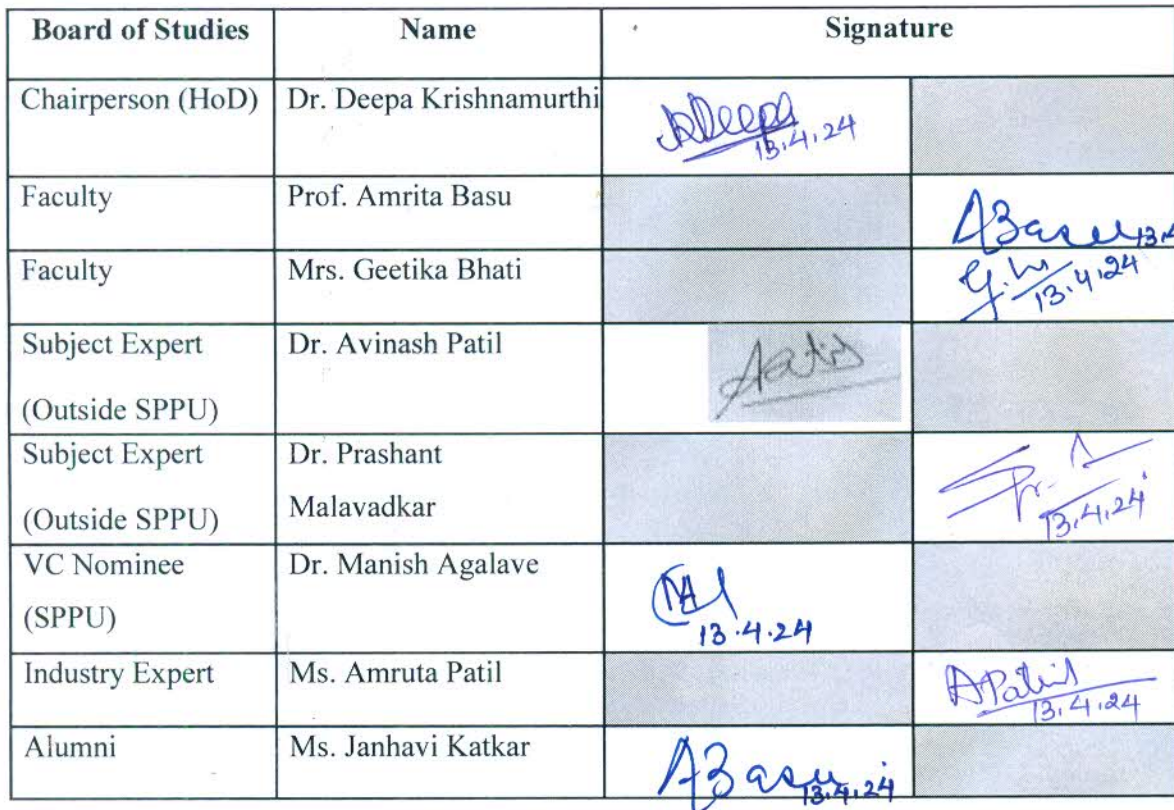 Board of Studies Name Signature
Chairperson (HoD) Dr. Deepa Krishnamurthi Deepa
13.4.24
Faculty Prof. Amrita Basu ABasu 13.4
Faculty Mrs. Geetika Bhati
13.4.24
Subject Expert Dr. Avinash Patil
(Outside SPPU)
Subject Expert Dr. Prashant
(Outside SPPU) Malavadkar
13.4.24
VC Nominee Dr. Manish Agalave
(SPPU)
13.4.24
Industry Expert Ms. Amruta Patil APatil
13.4.24
Alumni Ms. Janhavi Katkar ABasu
13.4.24